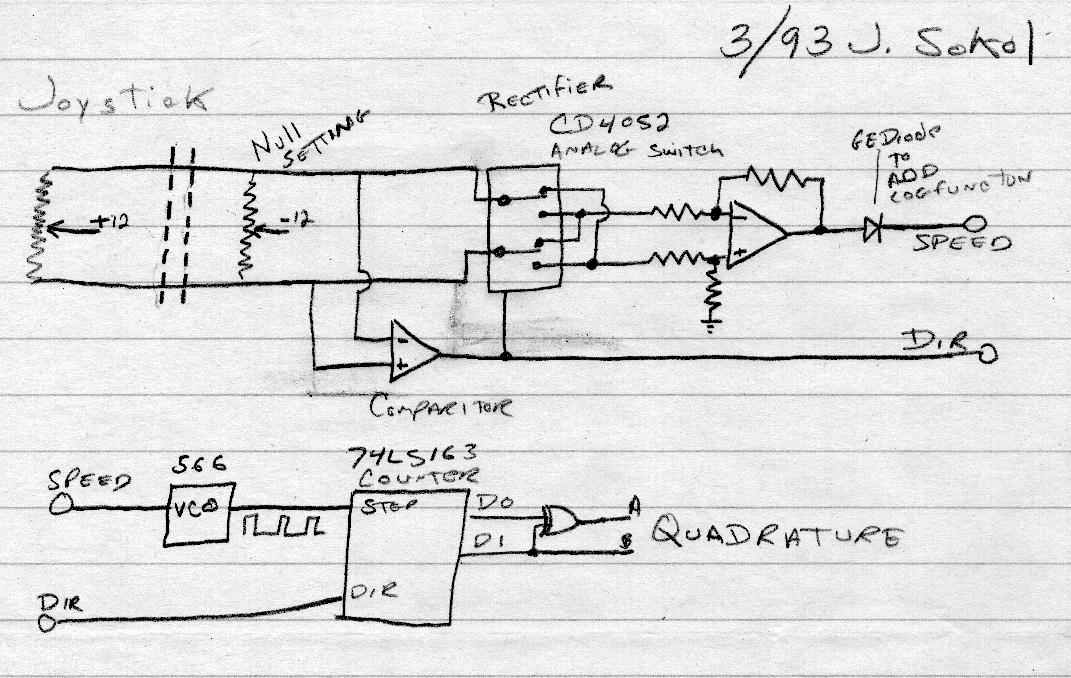 3/93 J. Sokol
Joystick
Null
SETTING
RECTIFIER
CD4052
ANALOG SWITCH
GE Diode
TO
ADD
LOG FUNCTION
+12
-12
-
+
SPEED
-
+
DIR
COMPARITOR
SPEED
566
VCO
74LS163
COUNTER
STEP
D0
D1
A
B
QUADRATURE
DIR
DIR